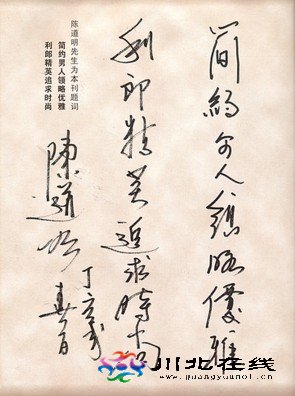 简約男人領略優雅
利郎精英追求時尚
陈道明先生为本刊题词
简约男人领略优雅
利郎精英追求时尚
陳道明
丁亥
春月
川北在线
www.guangyuanol.cn